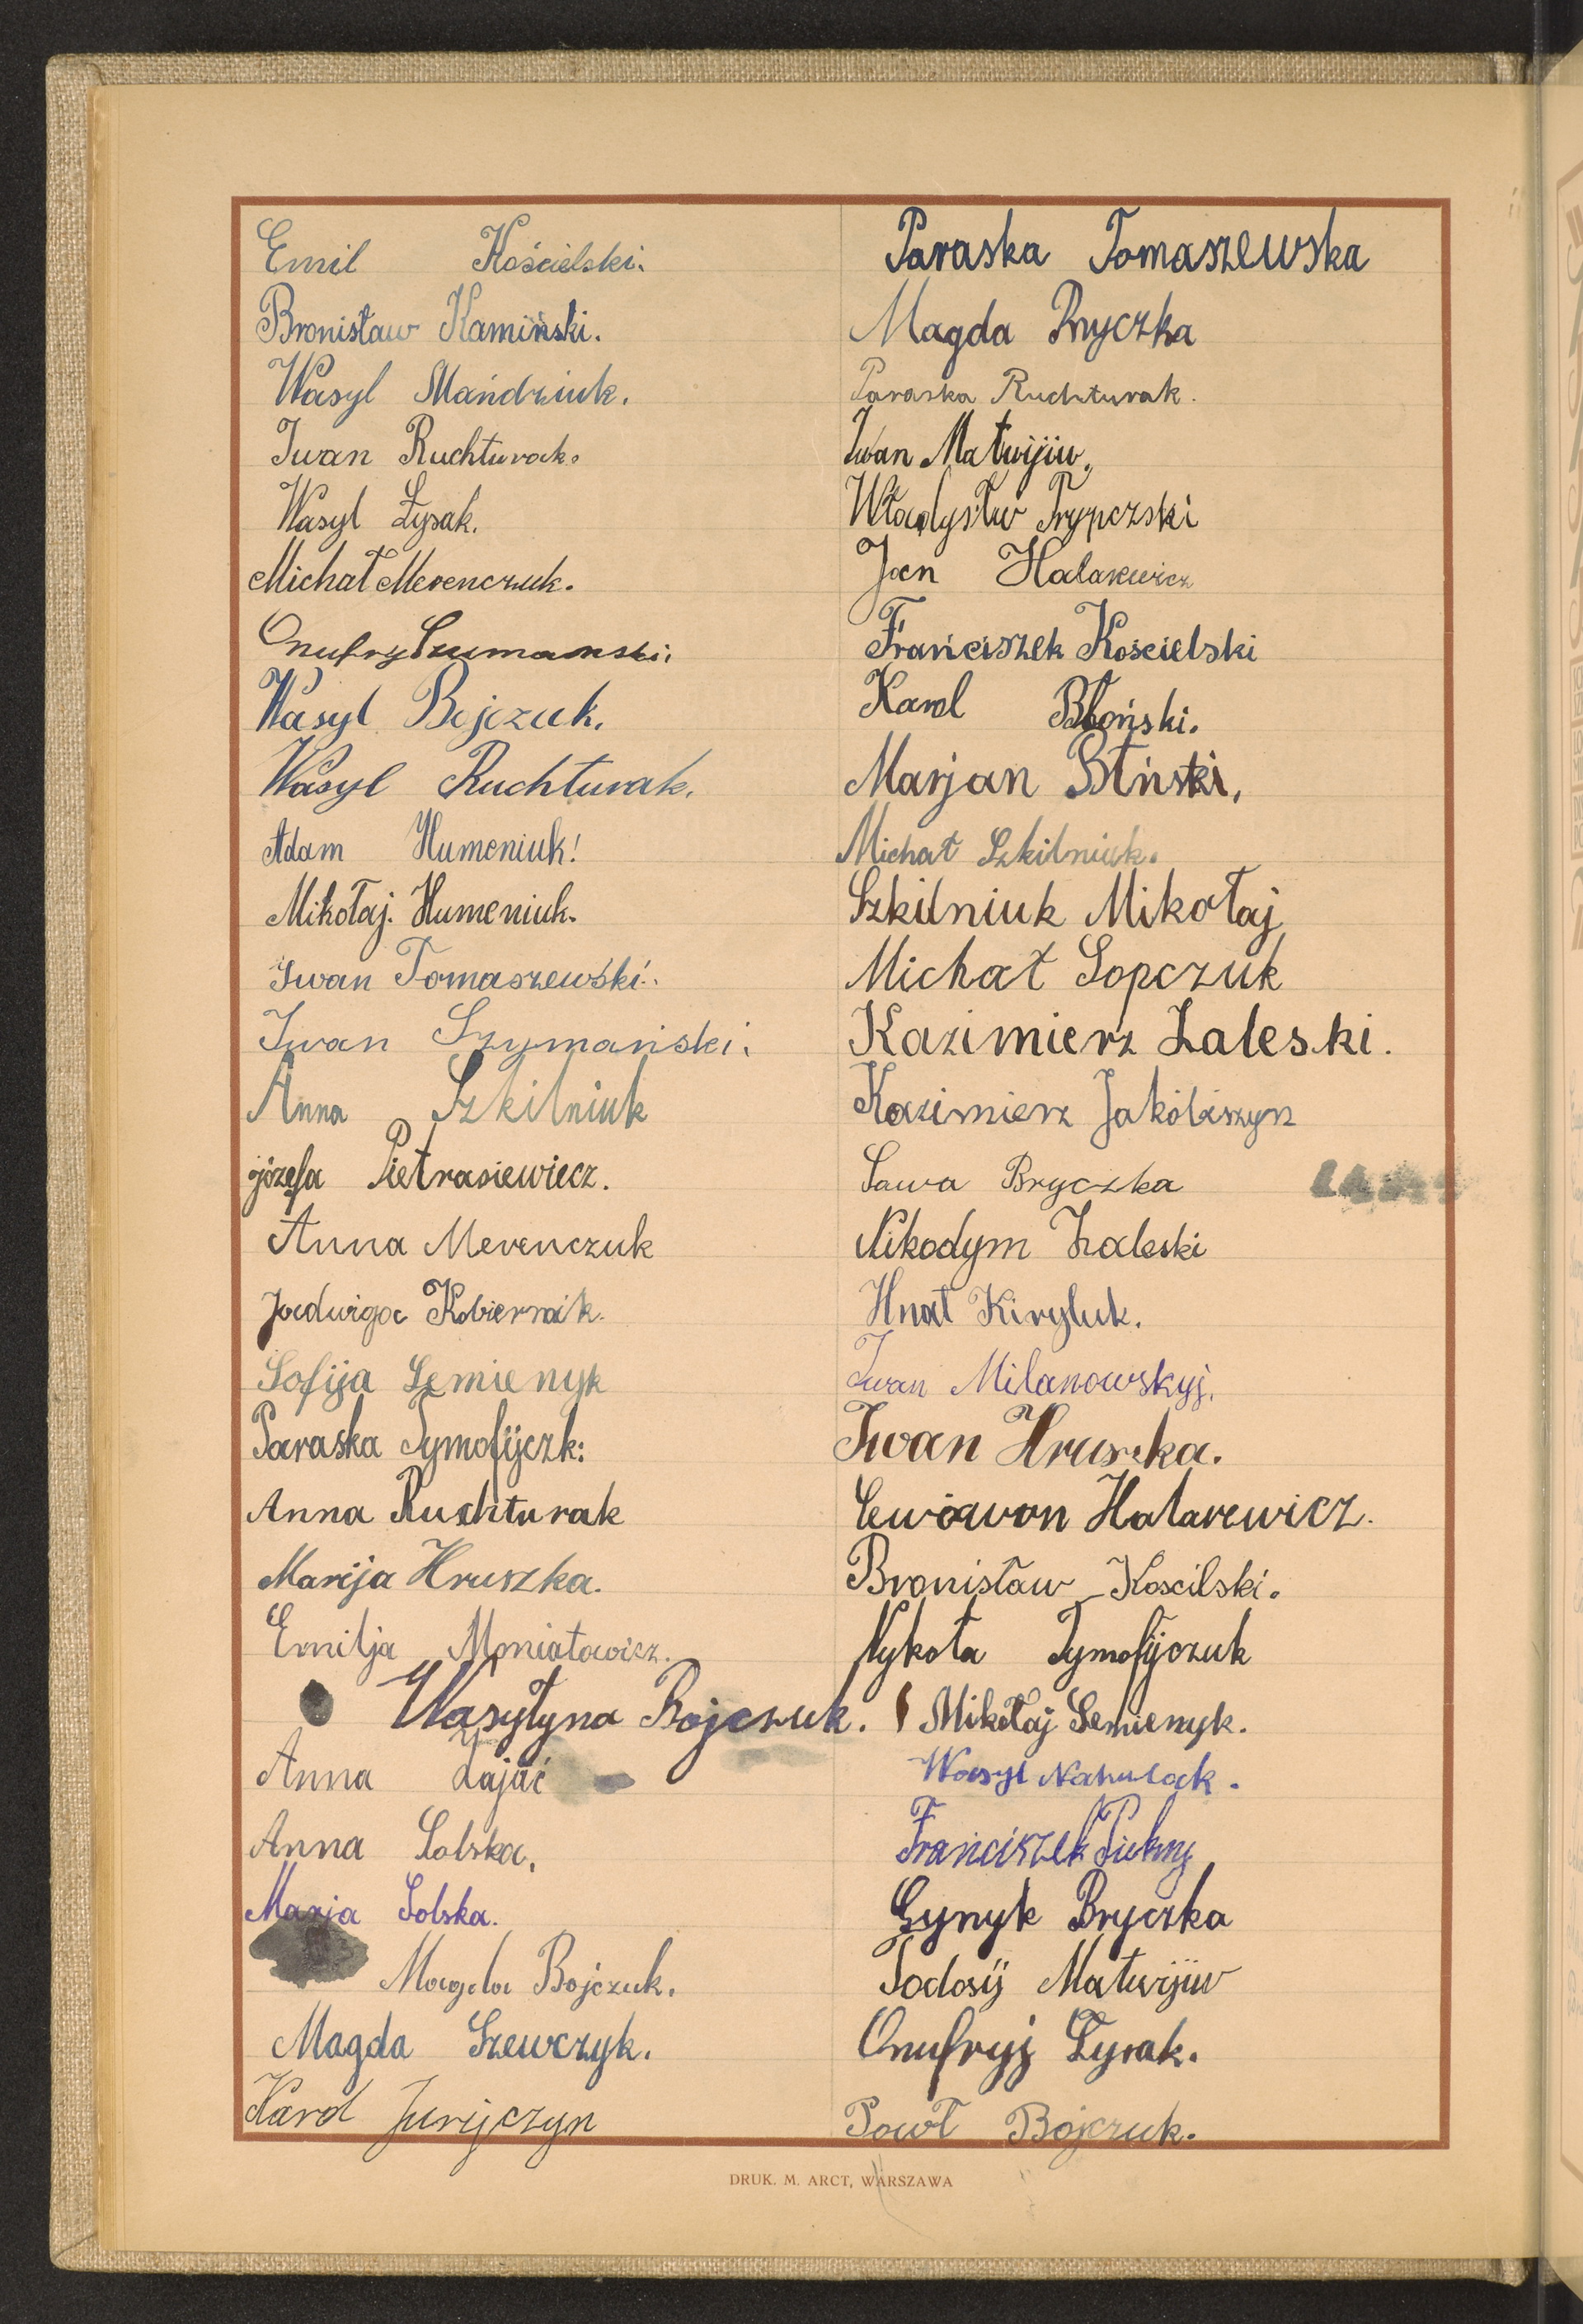 Emil Kościelski.
Bronisław Kamiński.
Wasyl Mańdziuk.
Iwan Ruchturak.
Wasyl Łysak.
Michał Merenczuk.
Onufry Szumanski.
Wasyl Bojczuk.
Wasyl Ruchturak.
Adam Humeniuk!
Mikołaj. Humeniuk.
Iwan Tomaszewski.
Iwan Szymański.
Anna Szkilniuk
józefa Pietrasiewiecz.
Anna Merenczuk
Jadwiga Kobiernik.
Sofija Semienyk
Paraska Tymofijczk:
Anna Ruchturak
Marija Hruszka.
Emilja Moniatowicz.
Wasyłyna Bojczuk.
Anna Zając
Anna Solska.
Marja Solska.
Magda Bojczuk.
Magda Szewczyk.
Karol Jurijczyn
Paraska Tomaszewska
Magda Bryczka
Paraska Ruchturak.
Iwan Matwijiw.
Władysłw Trypczski
Jan Halarewicz
Franciszek Kościelski
Karol Błoński.
Marjan Błński.
Michał Szkilniuk.
Szkilniuk Mikołaj
Michał Sopczuk
Kazimierz Zaleski.
Kazimierz Jakóbiszyn
Sawa Bryczka
Nikodym Zaleski
Hnat Kiryluk.
Iwan Milanowskyj.
Iwan Hruszka.
Halarewicz.
Bronisław Koscilski.
Nykoła Tymofijczuk
Mikołaj Semienyk.
Wasyl
Franciszek
Hynyk Bryczka
Todosij Matwijiw
Onufryj Łysak.
Pawł Bojczuk.
DRUK. M. ARCT, WARSZAWA